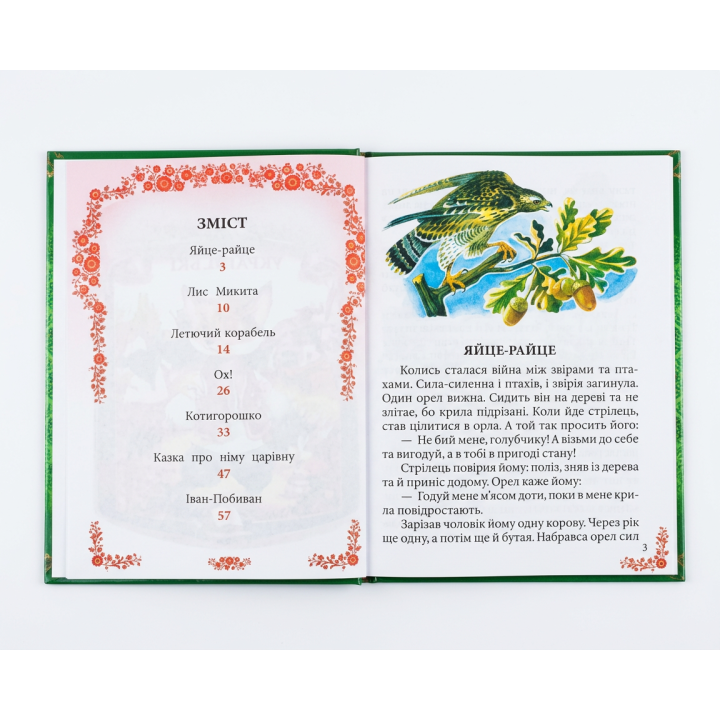 ЗМІСТ
Яйце-райце
3
Лис Микита
10
Летючий корабель
14
Ох!
26
Котигорошко
33
Казка про німу царівну
47
Іван-Побиван
57
ЯЙЦЕ-РАЙЦЕ
Колись сталася війна між звірами та пта-
хами. Сила-силенна і птахів, і звірія загинула.
Один орел вижна. Сидить він на дереві та не
злетає, бо крила підрізані. Коли йде стрілець,
став цілитися в орла. А той так просить його:
— Не бий мене, голубчику! А візьми до себе
та вигодуй, а в тобі в пригоді стану!
Стрілець повірия йому: поліз, зняв із дерева
та й приніс додому. Орел каже йому:
— Годуй мене м’ясом доти, поки в мене кри-
ла повідростають.
Зарізав чоловік йому одну корову. Через рік
ще одну, а потім ще й бутая. Набравса орел сил
3